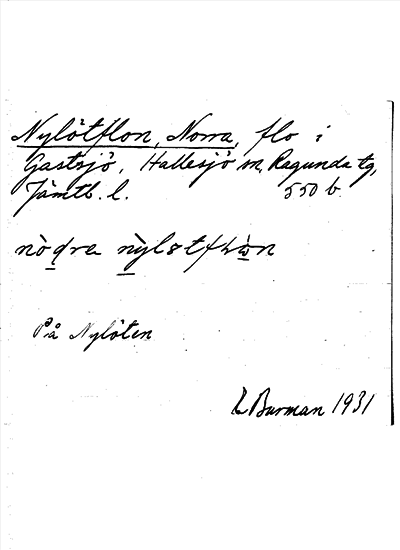 Nylötflon, Norra, flo i
Gastsjö, Hällesjö sn, Ragunda tg,
Jämtl. l. 550 b.
På Nylöten
L Burman 1931